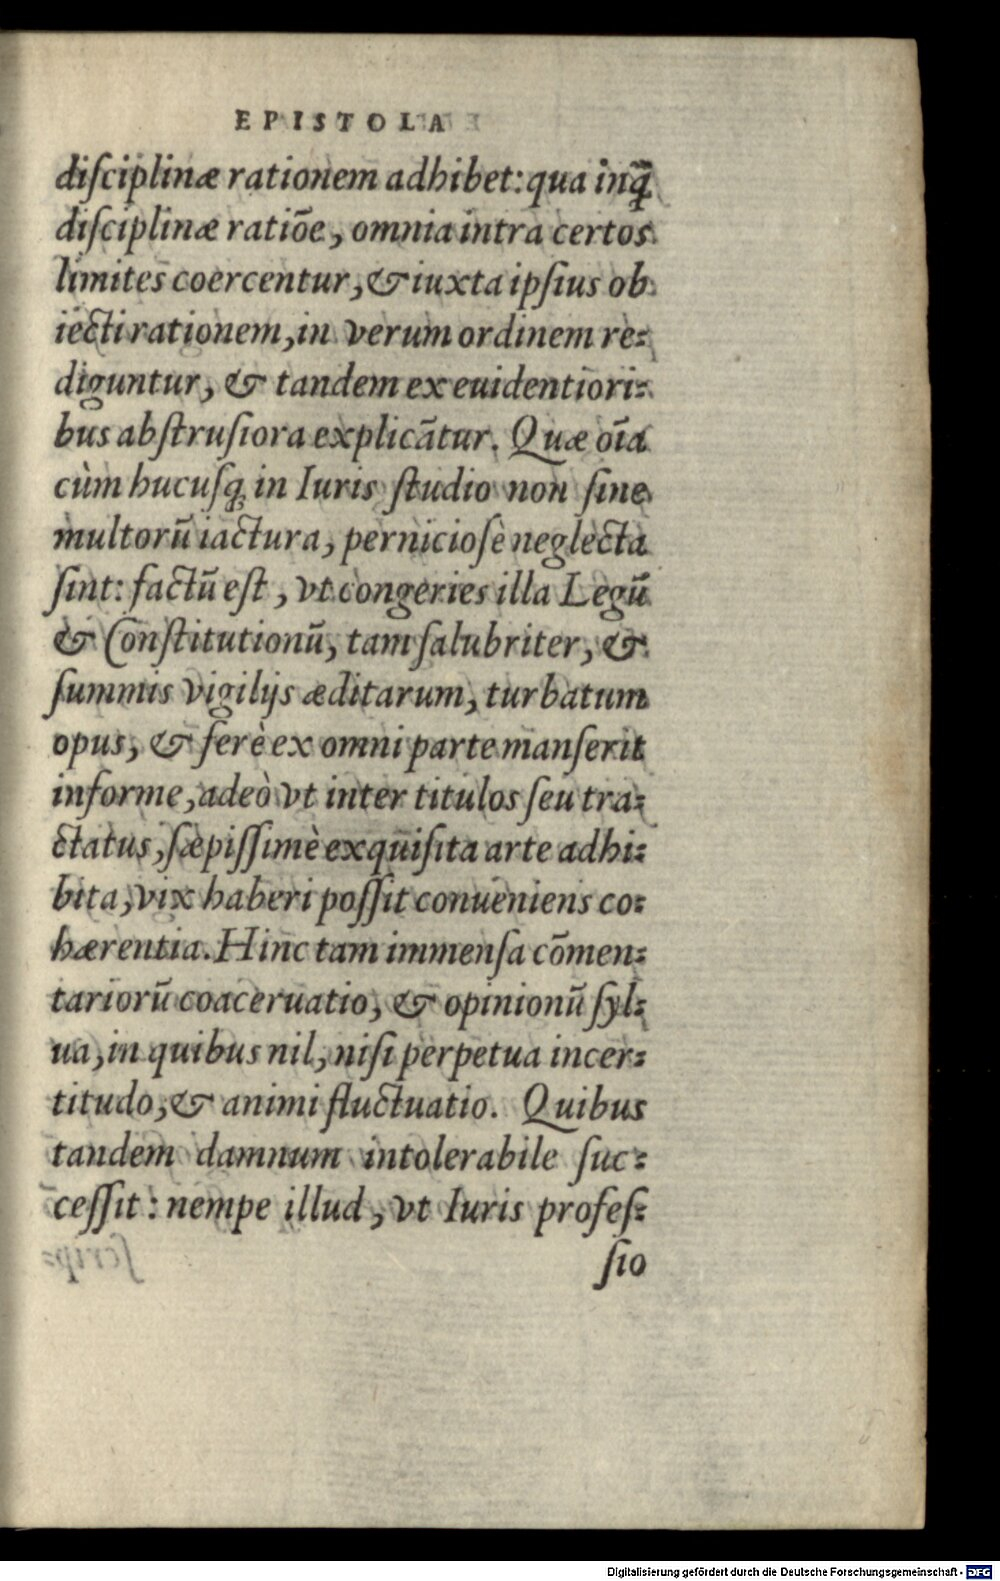 EPISTOLA
diſciplinæ rationem adhibet: qua inq̃
diſciplinæ ratiōe, omnia intra certos
limites coercentur, & iuxta ipſius ob
iecti rationem, in verum ordinem re-
diguntur, & tandem ex euidentiori-
bus abſtruſiora explicātur. Quæ oīa
cùm hucuſq; in Iuris ſtudio non ſine
multorū iactura, pernicioſè neglecta
ſint: factū eſt, vt congeries illa Legū
& Conſtitutionū, tam ſalubriter, &
ſummis vigilijs æditarum, turbatum
opus, & ferè ex omni parte manſerit
informe, adeò vt inter titulos ſeu tra-
ctatus, ſæpiſſimè exquiſita arte adhi-
bita, vix haberi poſſit conueniens co-
hærentia. Hinc tam immenſa cōmen-
tariorū coaceruatio, & opinionū ſyl-
ua, in quibus nil, niſi perpetua incer-
titudo, & animi fluctuatio. Quibus
tandem damnum intolerabile ſuc-
ceſſit: nempe illud, vt Iuris profeſ-
ſio
Digitalisierung gefördert durch die Deutsche Forschungsgemeinschaft - DFG